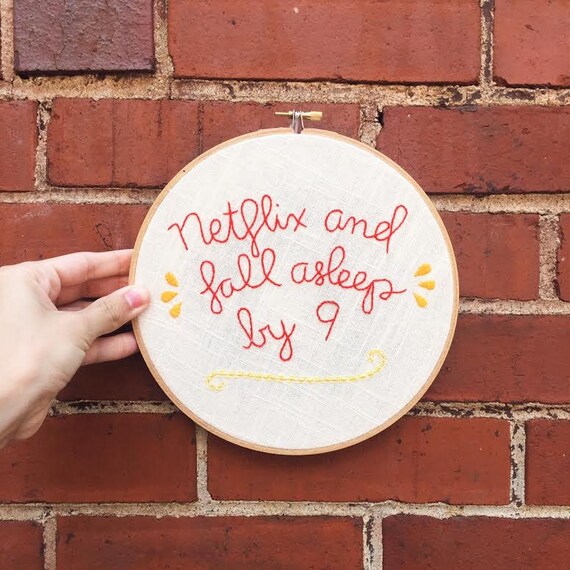 netflix and
fall asleep
by 9